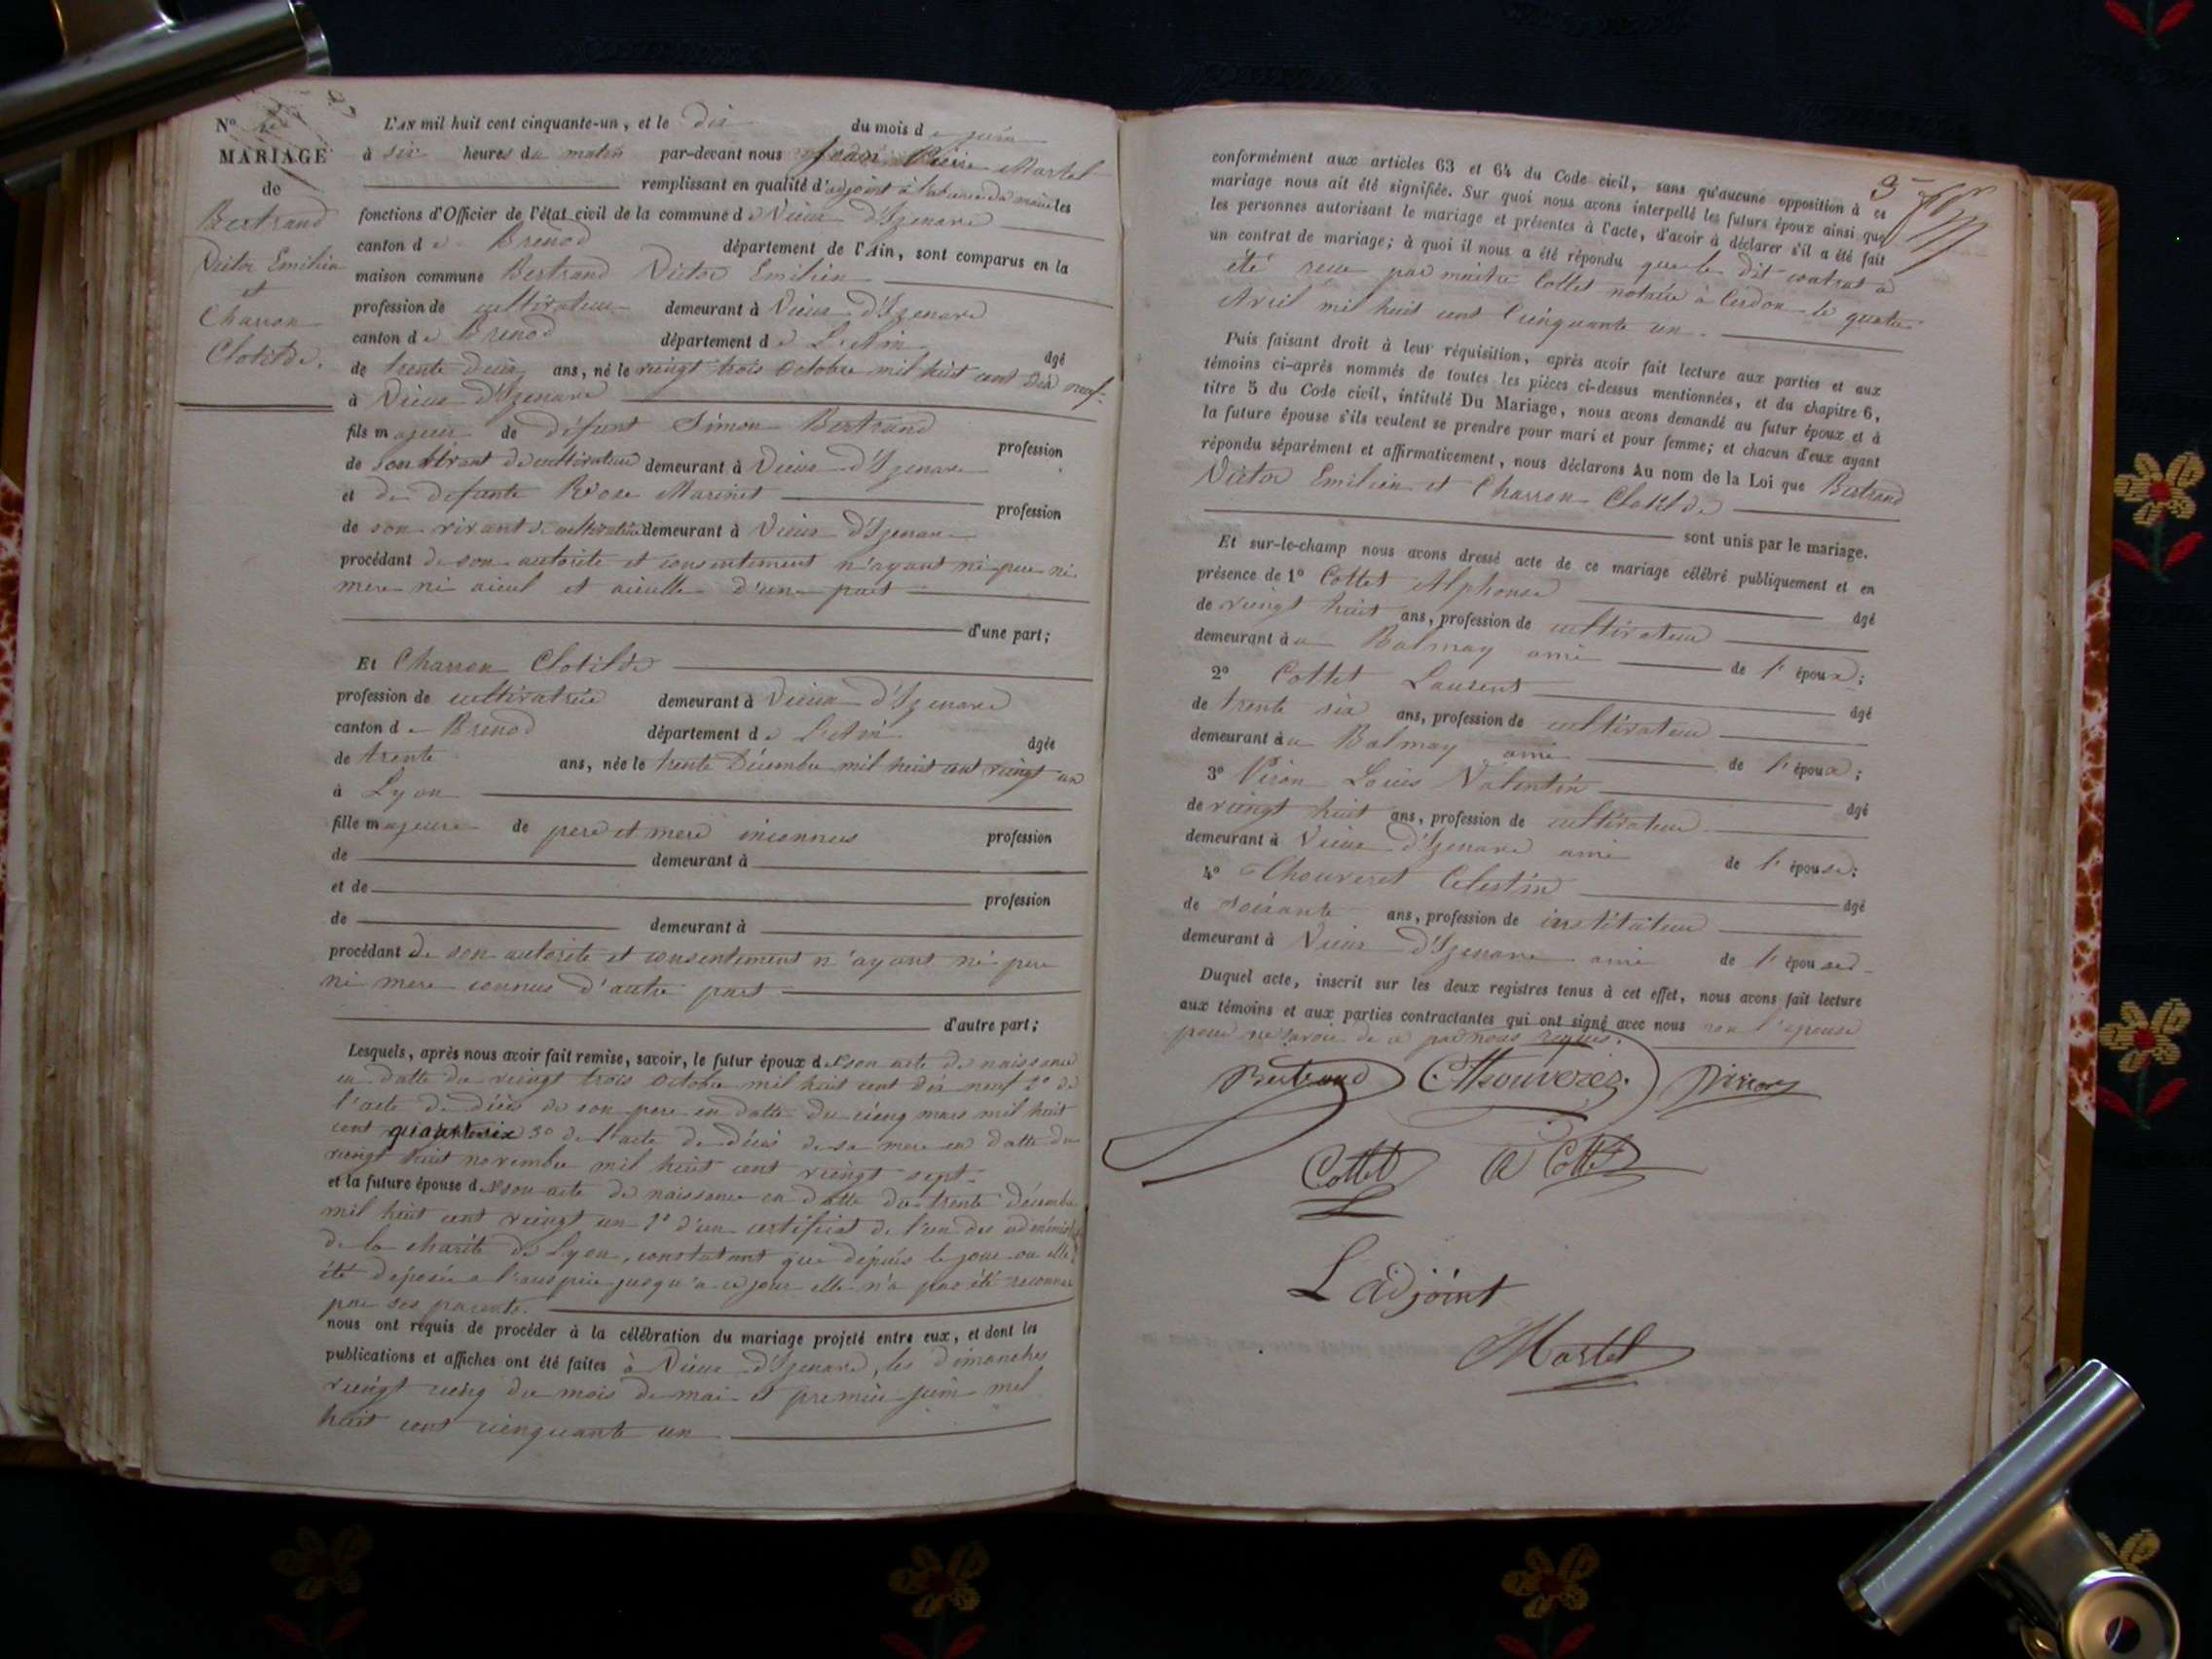 N°
MARIAGE
de
Bertrand
Victor Emilien
et
Charron
Clotilde.
L'AN mil huit cent cinquante-un, et le dix du mois de juin
à six heures du matin par-devant nous Jean Pierre Martel
remplissant en qualité d'adjoint à l'absence du maire les
fonctions d'Officier de l'état civil de la commune de Vieux d'Izenave
canton de Brenod département de l'Ain, sont comparus en la
maison commune Bertrand Victor Emilien
profession de cultivateur demeurant à Vieux d'Izenave
canton de Brenod département de L'Ain âgé
de trente deux ans, né le vingt trois octobre mil huit cent dix neuf
à Vieux d'Izenave
fils majeur de défunt Simon Bertrand profession
de son vivant de cultivateur demeurant à Vieux d'Izenave
et de defunte Rose Marinet profession
de son vivant de cultivatrice demeurant à Vieux d'Izenave
procédant de son autorité et consentement n'ayant ni pere ni
mere ni aieul et aieulle d'une part
d'une part;
Et Charron Clotilde
profession de cultivatrice demeurant à Vieux d'Izenave
canton de Brenod département de L'Ain âgée
de trente ans, née le trente Décembre mil huit cent vingt un
à Lyon
fille majeure de pere et mere inconnus profession
de demeurant à
et de profession
de demeurant à
procédant de son autorité et consentement n'ayant ni pere
ni mere connus d'autre part
d'autre part;
Lesquels, après nous avoir fait remise, savoir, le futur époux de son acte de naissance
en datte du vingt trois octobre mil huit cent dix neuf 2° de
l'acte de décès de son pere en datte du cinq mars mil huit
cent 3° de l'acte de décès de sa mere en datte du
vingt huit novembre mil huit cent vingt sept
et la future épouse de son acte de naissance en datte du trente décembre
mil huit cent vingt un 2° d'un certificat de l'un des
de la charité de Lyon, constatant que depuis le jour ou elle a
été déposée a l'auspice jusqu'à ce jour elle n'a pas été reconnue
par ses parents.
nous ont requis de procéder à la célébration du mariage projeté entre eux, et dont les
publications et affiches ont été faites à Vieux d'Izenave, les dimanches
vingt cinq du mois de mai et premier juin mil
huit cent cinquante un
3
conformément aux articles 63 et 64 du Code civil, sans qu'aucune opposition à ce
mariage nous ait été signifiée. Sur quoi nous avons interpellé les futurs époux ainsi que
les personnes autorisant le mariage et présentes à l'acte, d'avoir à déclarer s'il a été fait
un contrat de mariage; à quoi il nous a été répondu que le dit contrat a
été reçu par maitre Collet notaire à Cerdon le quatre
Avril mil huit cent Cinquante un.
Puis faisant droit à leur réquisition, après avoir fait lecture aux parties et aux
témoins ci-après nommés de toutes les pièces ci-dessus mentionnées, et du chapitre 6,
titre 5 du Code civil, intitulé Du Mariage, nous avons demandé au futur époux et à
la future épouse s'ils veulent se prendre pour mari et pour femme; et chacun d'eux ayant
répondu séparément et affirmativement, nous déclarons Au nom de la Loi que Bertrand
Victor Emilien et Charron Clotilde
sont unis par le mariage.
Et sur-le-champ nous avons dressé acte de ce mariage célébré publiquement et en
présence de 1° Cottet Alphonse âgé
de vingt huit ans, profession de cultivateur
demeurant au Balmay ami de l'époux;
2° Cottet Laurent âgé
de trente six ans, profession de cultivateur
demeurant au Balmay ami de l'époux;
3° Louis Valentin âgé
de vingt huit ans, profession de cultivateur
demeurant à Vieux d'Izenave ami de l'épouse;
4° Chouveret Celestin âgé
de soixante ans, profession de instituteur
demeurant à Vieux d'Izenave ami de l'épouse
Duquel acte, inscrit sur les deux registres tenus à cet effet, nous avons fait lecture
aux témoins et aux parties contractantes qui ont signé avec nous non l'épouse
pour ne savoir de ce par nous requis.
Bertrand
Cottet A Cottet
L'adjoint
Martel